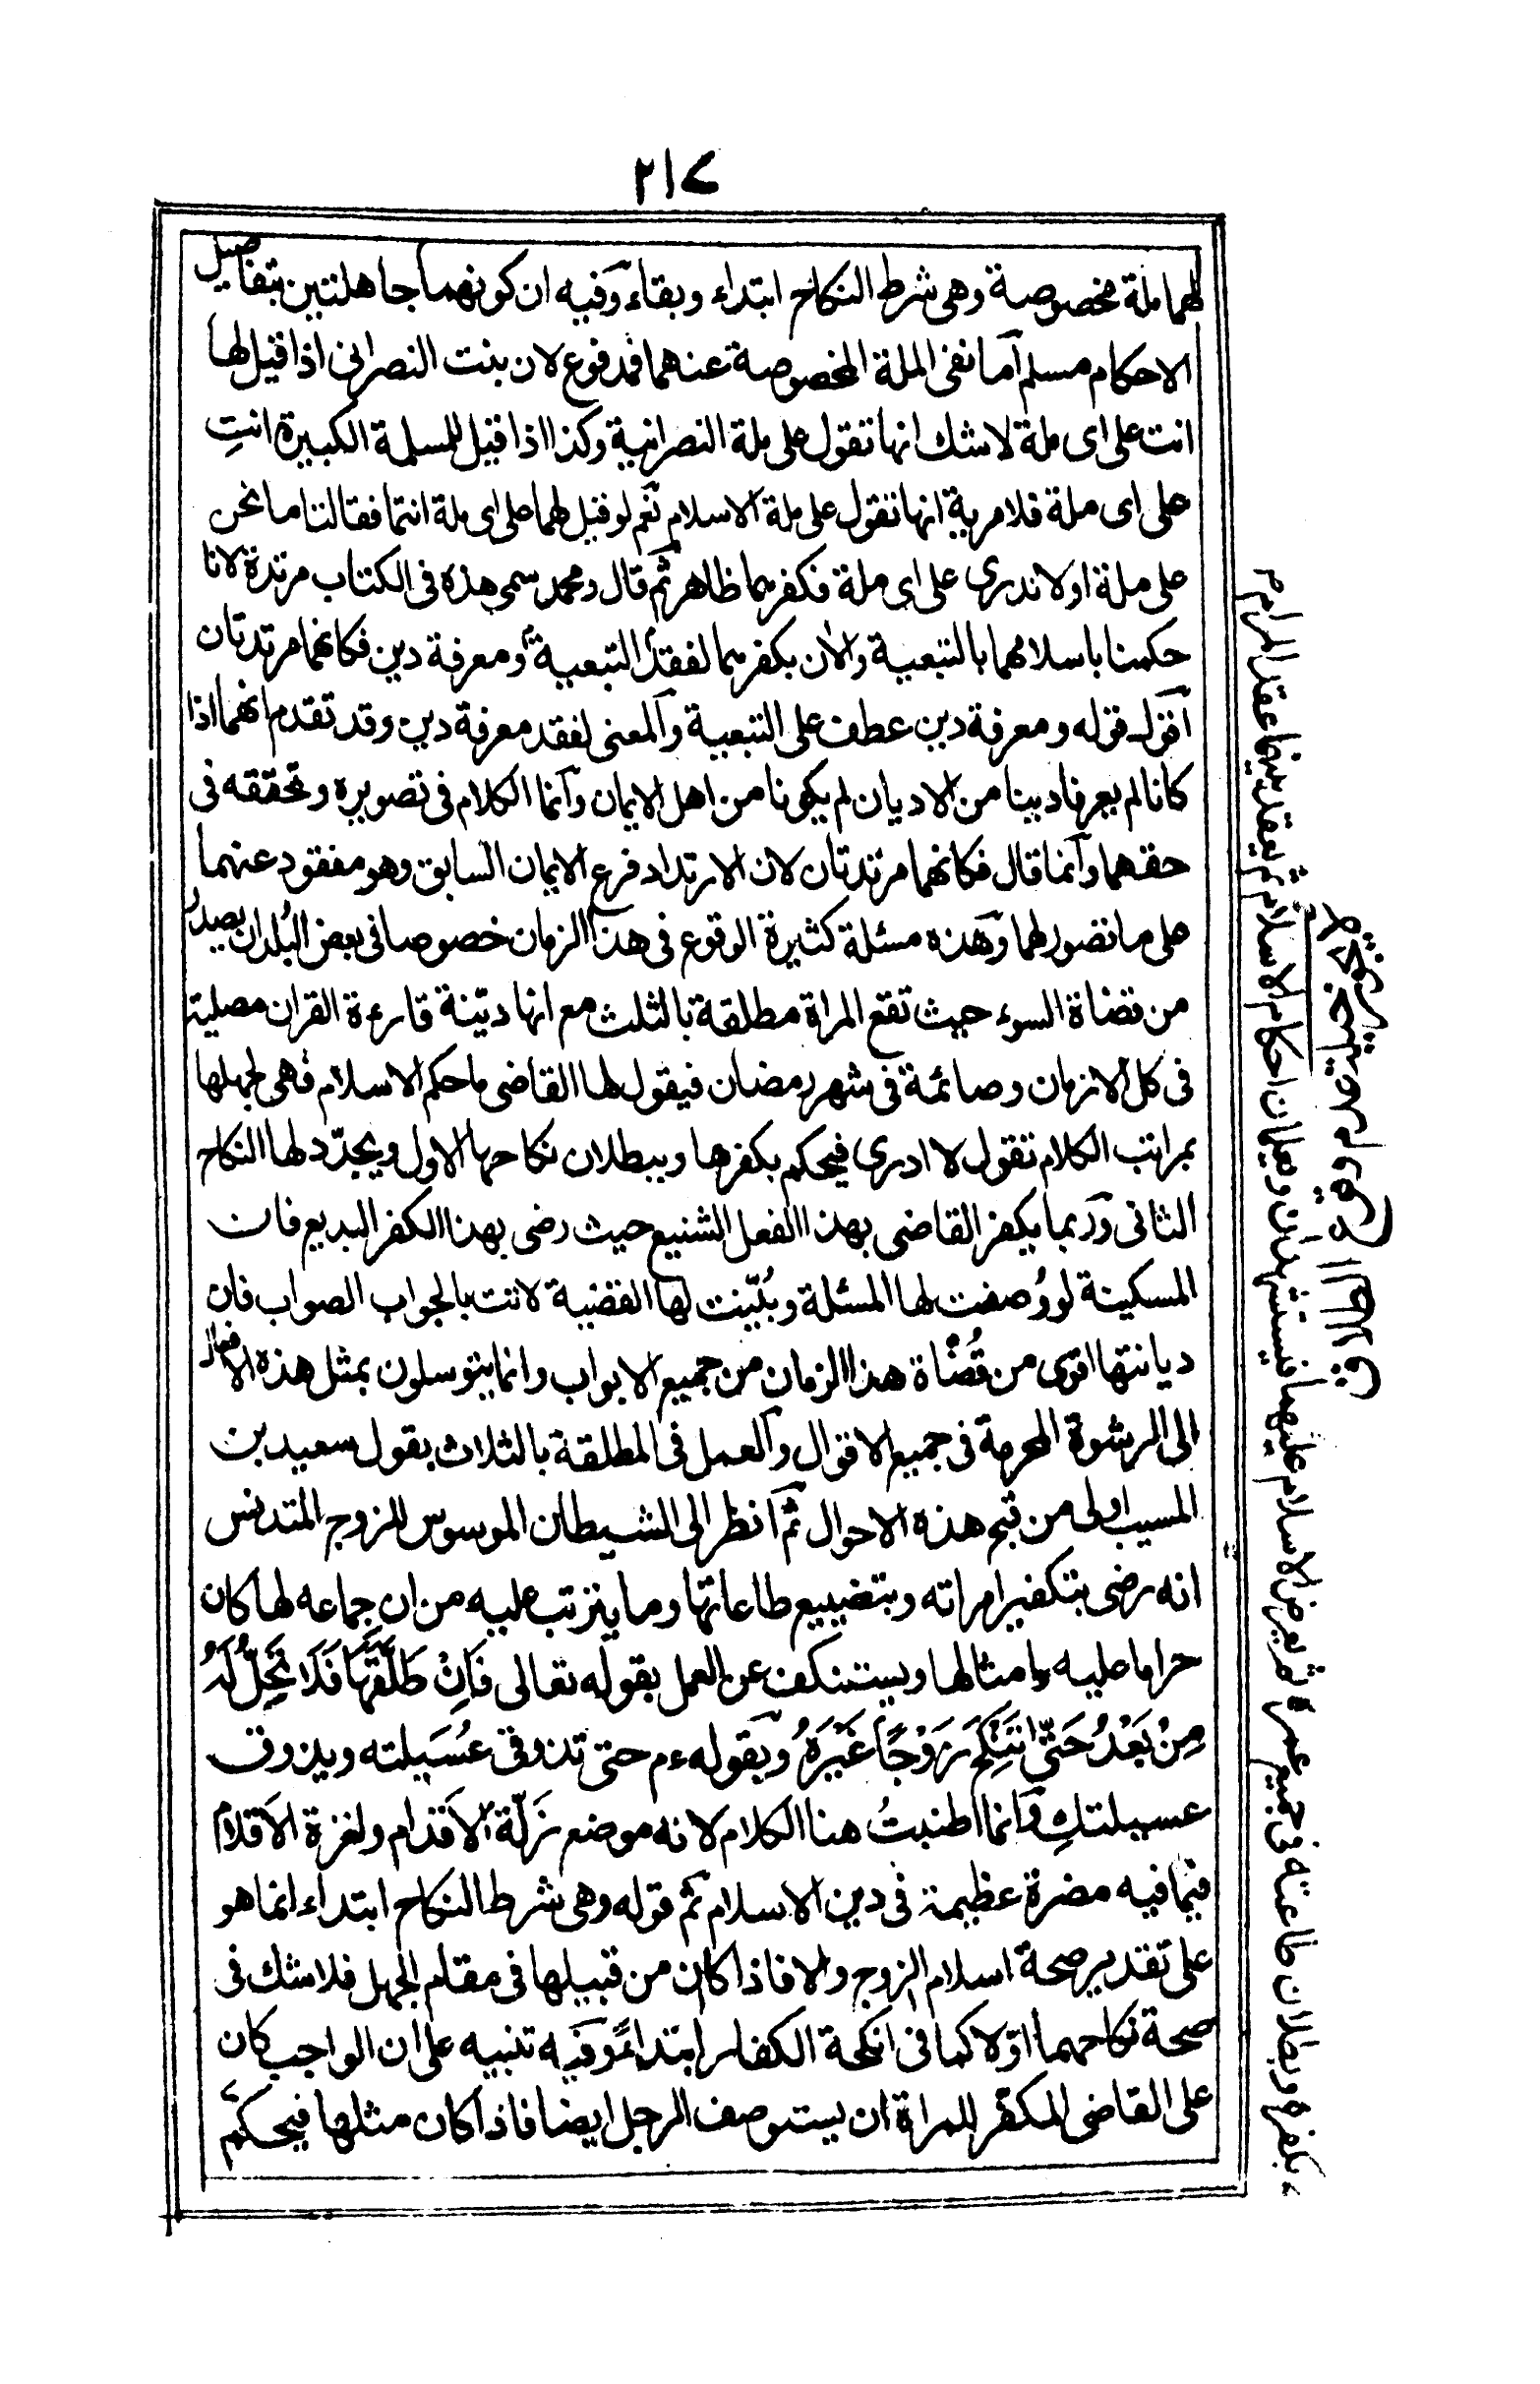 ٢١٧
لهما ملة مخصوصة وهى شرط النكاح ابتداء وبقاء وفيه ان كونهما جاهلتين بتفاصيل
الاحكام مسلم اما نفى الملة المخصوصة عنهما فمدفوع لان بنت النصرانى اذا قيل لها
انت على اى ملة لا شك انها تقول على ملة النصرانية وكذا اذا قيل للمسلمة الكبيرة انتِ
على اى ملة فلا مرية انها تقول على ملة الاسلام نعم لو قيل لهما على اى ملة انتما فقالتا ما نحن
على ملة او لا ندرى على اى ملة فكفرهما ظاهر ثم قال ومحمد سمى هذه فى الكتاب مرتدة لانا
حكمنا باسلامهما بالتبعية والآن بكفرهما لفقد التبعية ومعرفة دين فكانهما مرتدتان
اقول قوله ومعرفة دين عطف على التبعية والمعنى لفقد معرفة دين وقد تقدم انهما اذا
كانا لم يعرفا دينا من الاديان لم يكونا من اهل الايمان وانما الكلام فى تصويره وتحققه فى
حقهما وانما قال فكانهما مرتدتان لان الارتداد فرع الايمان السابق وهو مفقود عنهما
على ما تصور لهما وهذه مسئلة كثيرة الوقوع فى هذا الزمان خصوصا فى بعض البُلدان يصدر
من قضاة السوء حيث تقع المراة مطلقة بالثلث مع انها ديّنة قارءة القران مصلية
فى كل الازمان وصائمة فى شهر رمضان فيقول لها القاضى ما حكم الاسلام فهى لجهلها
بمراتب الكلام تقول لا ادرى فيحكم بكفرها وببطلان نكاحها الاول ويجدّد لها النكاح
الثانى وربما يكفر القاضى بهذا الفعل الشنيع حيث رضى بهذا الكفر البديع فان
المسكينة لو وُصفت لها المسئلة وبُيّنت لها القضية لاتت بالجواب الصواب فان
ديانتها اقوى من قُضاة هذا الزمان من جميع الابواب وانما يتوسلون بمثل هذه الافعال
الى الرشوة المحرمة فى جميع الاقوال والعمل فى المطلقة بالثلاث بقول سعيد بن
المسيب اولى من قبح هذه الاحوال ثم انظر الى الشيطان الموسوس للزوج المتدنس
انه رضى بتكفير امراته وبتضييع طاعاتها وما يترتب عليه من ان جماعه لها كان
حراما عليه وامثالها ويستنكف عن العمل بقوله تعالى فَاِنْ طَلَّقَهَا فَلَا تَحِلُّ لَهُ
مِنْ بَعْدُ حَتّى تَنْكِحَ زَوْجًا غَيْرَهُ وبقوله ءم حتى تذوقى عُسَيلته ويذوق
عسيلتكِ وانما اطنبتُ هنا الكلام لانه موضع زَلّة الاَقدام ولغزة الاَقلام
فيما فيه مضرة عظيمة فى دين الاسلام ثم قوله وهى شرط النكاح ابتداء انما هو
على تقدير صحة اسلام الزوج والا فاذا كان من قبيلها فى مقام الجهل فلا شك فى
صحة نكاحهما اوّلا كما فى انكحة الكفار ابتداءً وفيه تنبيه على ان الواجب كان
على القاضى المكفّر للمراة ان يستوصف الرجل ايضا فاذا كان مثلها فيحكم
بكفره وبطلان طاعته فى جميع عمره ثم يعرض الاسلام عليهما فيستشهدان ويعلمان احكام الاسلام ثم يعقد بينهما عقد المرام م